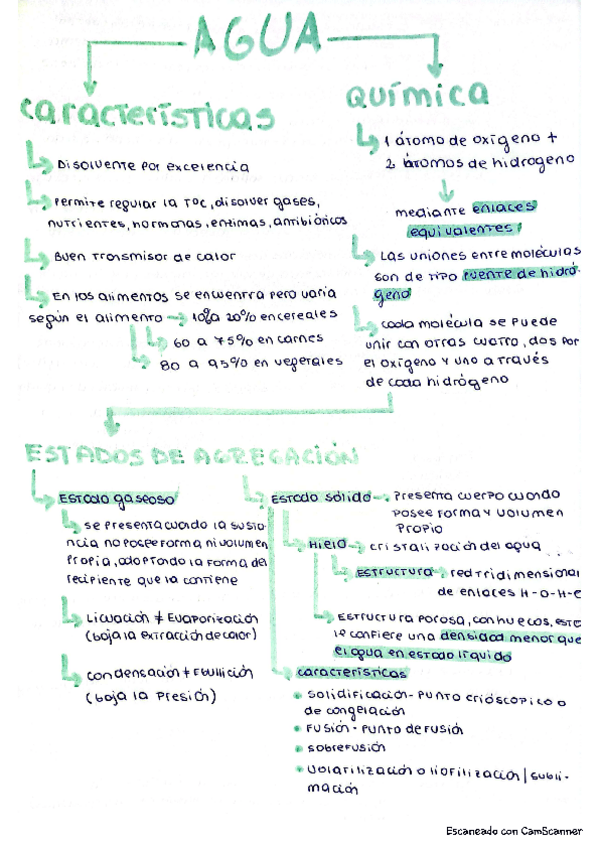 AGUA
características
Disolvente por excelencia
Permite regular la TOC, disolver gases,
nutrientes, hormonas, enzimas, antibióticos
Buen transmisor de calor
En los alimentos se encuentra pero varía
según el alimento → 10 a 20% en cereales
60 a 75% en carnes
80 a 95% en vegetales
QUÍMICA
1 átomo de oxígeno +
2 átomos de hidrogeno
mediante enlaces
equivalentes
Las uniones entre moléculas
son de tipo puente de hidró-
geno
cada molécula se puede
unir con otras cuatro, dos por
el oxígeno y uno a través
de cada hidrógeno
ESTADOS DE AGREGACIÓN
Estado gaseoso
se presenta cuando la sustan-
cia no posee forma ni volumen
propia, adoptando la forma del
recipiente que la contiene
Licuación ≠ Evaporización
(baja la extracción de calor)
condensación ≠ Ebullición
(baja la presión)
Estado sólido → Presenta cuerpo cuando
posee forma y volumen
propio
Hielo → cristalización del agua
Estructura → red tridimensional
de enlaces H-O-H-C
Estructura porosa, con huecos, este
le confiere una densidad menor que
el agua en estado líquido
características
• Solidificación - punto crióscopico o
de congelación
• Fusión - punto de fusión
• Sobrefusión
• Volatilización o liofilización / subli-
mación
Escaneado con CamScanner